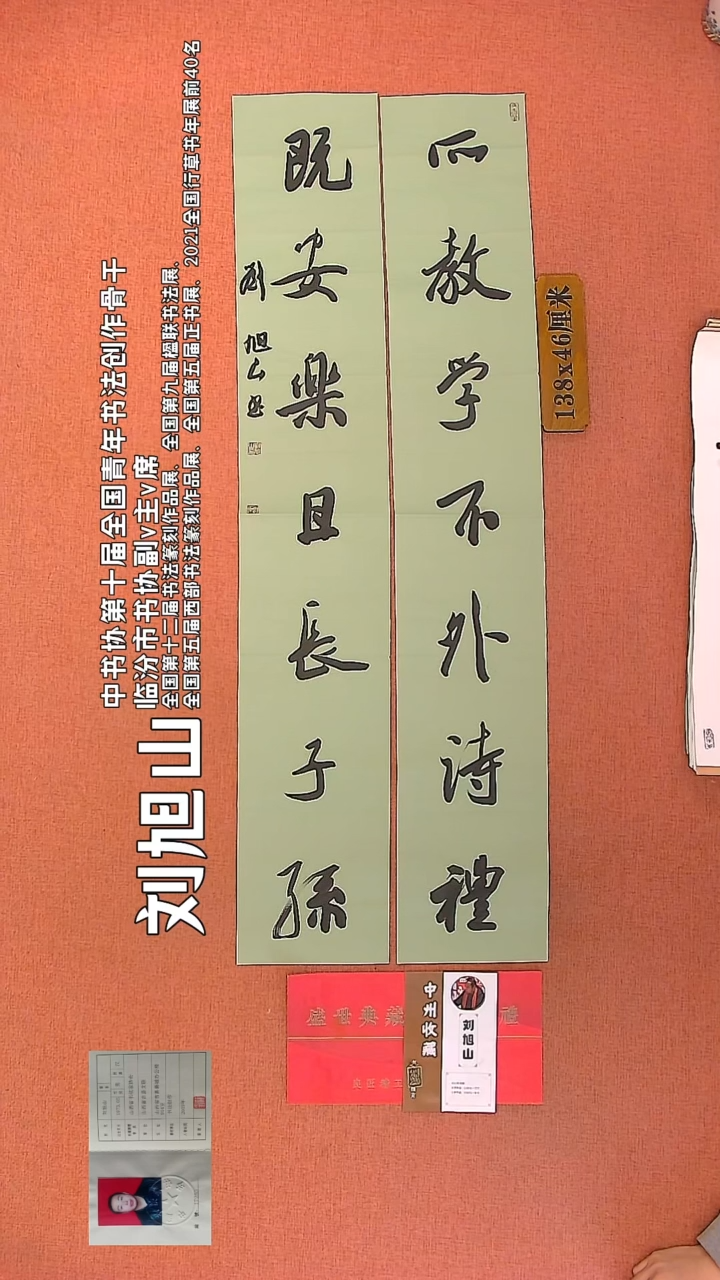 所教学不外诗禮
既安樂且長子孫
劉旭山書
138x46厘米
中书协第十届全国青年书法创作骨干
临汾市书协副v主v席
全国第十二届书法篆刻作品展、全国第九届楹联书法展、
全国第五届西部书法篆刻作品展、全国第五届正书展、2021全国行草书年展前40名
刘旭山
中州收藏
刘旭山